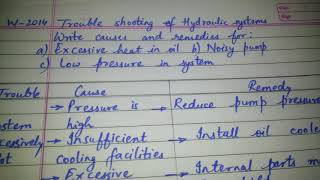 W-2014 Trouble shooting of Hydraulic systems
Write causes and remedies for:
a) Excessive heat in oil b) Noisy pump
c) Low pressure in system
Trouble Cause Remedy
→ Pressure is high → Reduce pump pressure
→ Insufficient cooling facilities → Install oil coole
→ Excessive → Internal parts m